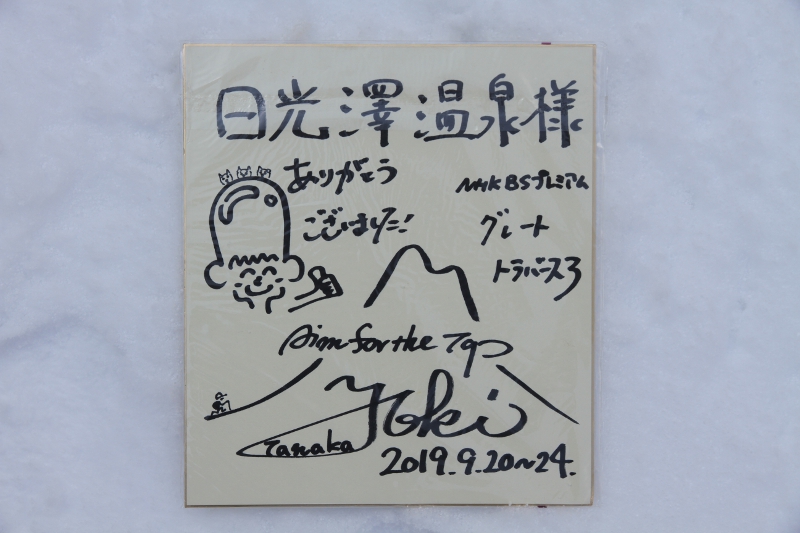 日光澤温泉様
ありがとう
ございました!
NHK BSプレミアム
グレート
トラバース3
Aim for the Top
Yoki
Tanaka
2019.9.20〜24.